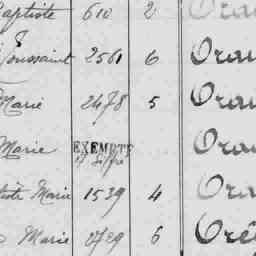 Baptiste 610 2 Orau
Toussaint 2561 6 Orau
Marie 2478 5 Orau
Marie EXEMPTÉ Orau
tiste Marie 1539 4 Orau
Marie 0729 6 Oré